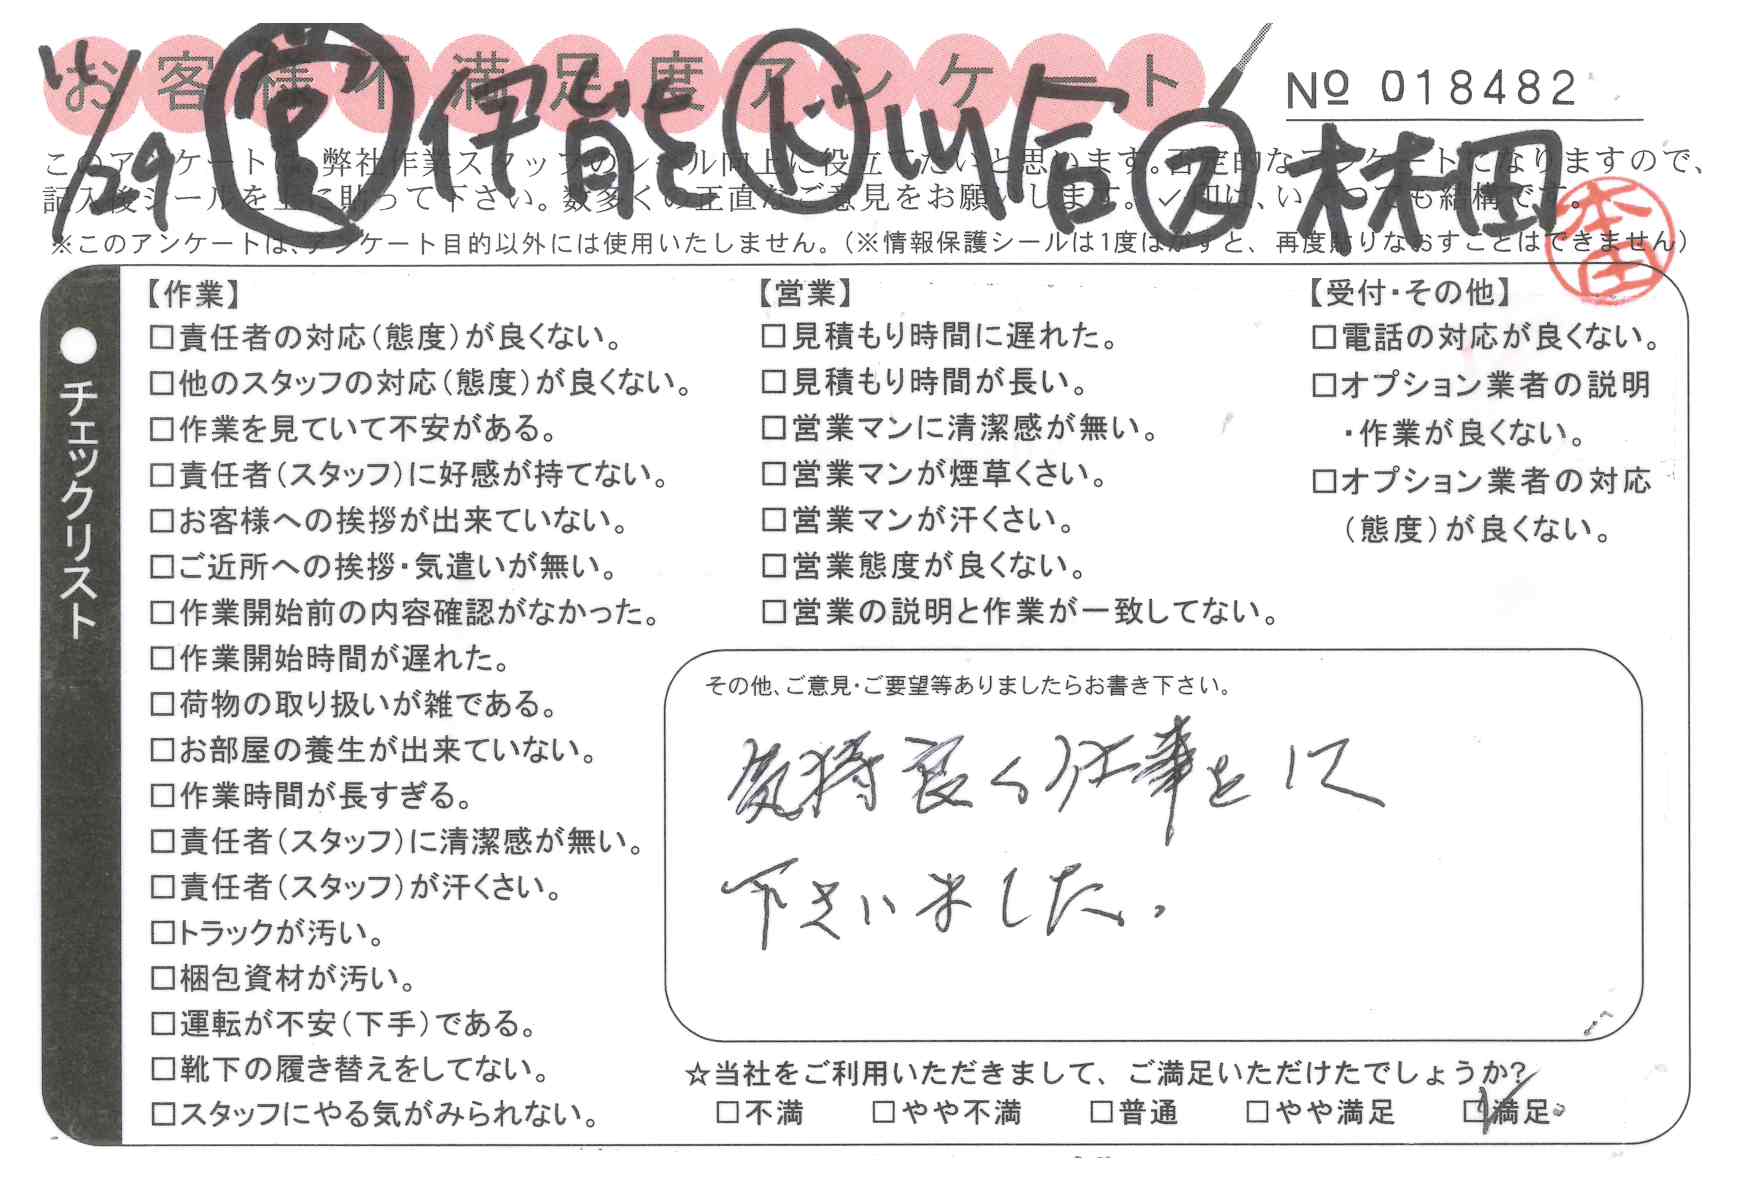 お客様不満足度アンケート
No 018482
11/29 営 伊能 ド 川合 又 林田
このアンケートは、弊社作業スタッフのレベル向上に役立てたいと思います。否定的なアンケートになりますので、
記入後シールを上に貼って下さい。数多くの正直なご意見をお願いします。✓印は、いくつでも結構です。
本田
※このアンケートは、アンケート目的以外には使用いたしません。(※情報保護シールは1度はがすと、再度貼りなおすことはできません)
●チェックリスト
【作業】
□責任者の対応(態度)が良くない。
□他のスタッフの対応(態度)が良くない。
□作業を見ていて不安がある。
□責任者(スタッフ)に好感が持てない。
□お客様への挨拶が出来ていない。
□ご近所への挨拶・気遣いが無い。
□作業開始前の内容確認がなかった。
□作業開始時間が遅れた。
□荷物の取り扱いが雑である。
□お部屋の養生が出来ていない。
□作業時間が長すぎる。
□責任者(スタッフ)に清潔感が無い。
□責任者(スタッフ)が汗くさい。
□トラックが汚い。
□梱包資材が汚い。
□運転が不安(下手)である。
□靴下の履き替えをしてない。
□スタッフにやる気がみられない。
【営業】
□見積もり時間に遅れた。
□見積もり時間が長い。
□営業マンに清潔感が無い。
□営業マンが煙草くさい。
□営業マンが汗くさい。
□営業態度が良くない。
□営業の説明と作業が一致してない。
【受付・その他】
□電話の対応が良くない。
□オプション業者の説明
・作業が良くない。
□オプション業者の対応
(態度)が良くない。
その他、ご意見・ご要望等ありましたらお書き下さい。
気持良く仕事をして
下さいました。
☆当社をご利用いただきまして、ご満足いただけたでしょうか?
□不満 □やや不満 □普通 □やや満足 ☑満足